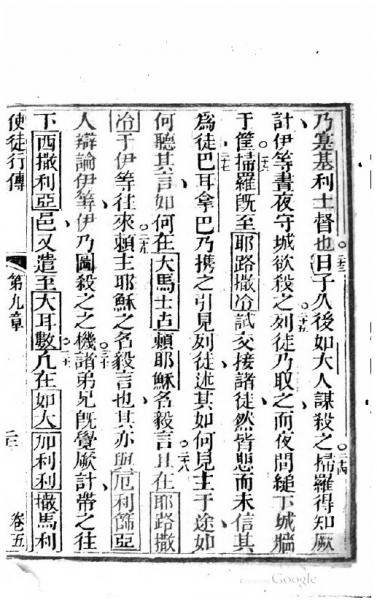 乃塞基利士督也。日子久後如大人謀殺之掃羅得知厥
計伊等晝夜守城欲殺之列徒乃取之而夜間縋下城牆
于筐掃羅旣至耶路撒冷試交接諸徒然皆而未信其
為徒巴耳拿巴乃携之引見列徒述其如何見主于途如
何聽其言如何在大馬士古賴耶穌名毅言且在耶路撒
冷于伊等往來賴主耶穌之名毅言也其亦與厄利篩亞
人辯論伊等伊乃圖殺之之機諸弟兄旣覺厥計帶之往
下西撒利亞邑又遣至大耳數凡在如大加利利撒馬利
使徒行傳 第九章 卷五
Google